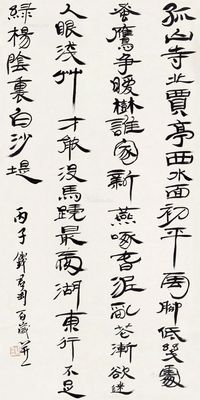 孤山寺北賈亭西水面初平雲腳低幾處
蚤鶯爭暖樹誰家新燕啄春泥亂花漸欲迷
人眼淺艸才能沒馬蹄最愛湖東行不足
綠楊陰裏白沙堤 丙子 錢君匋百歲